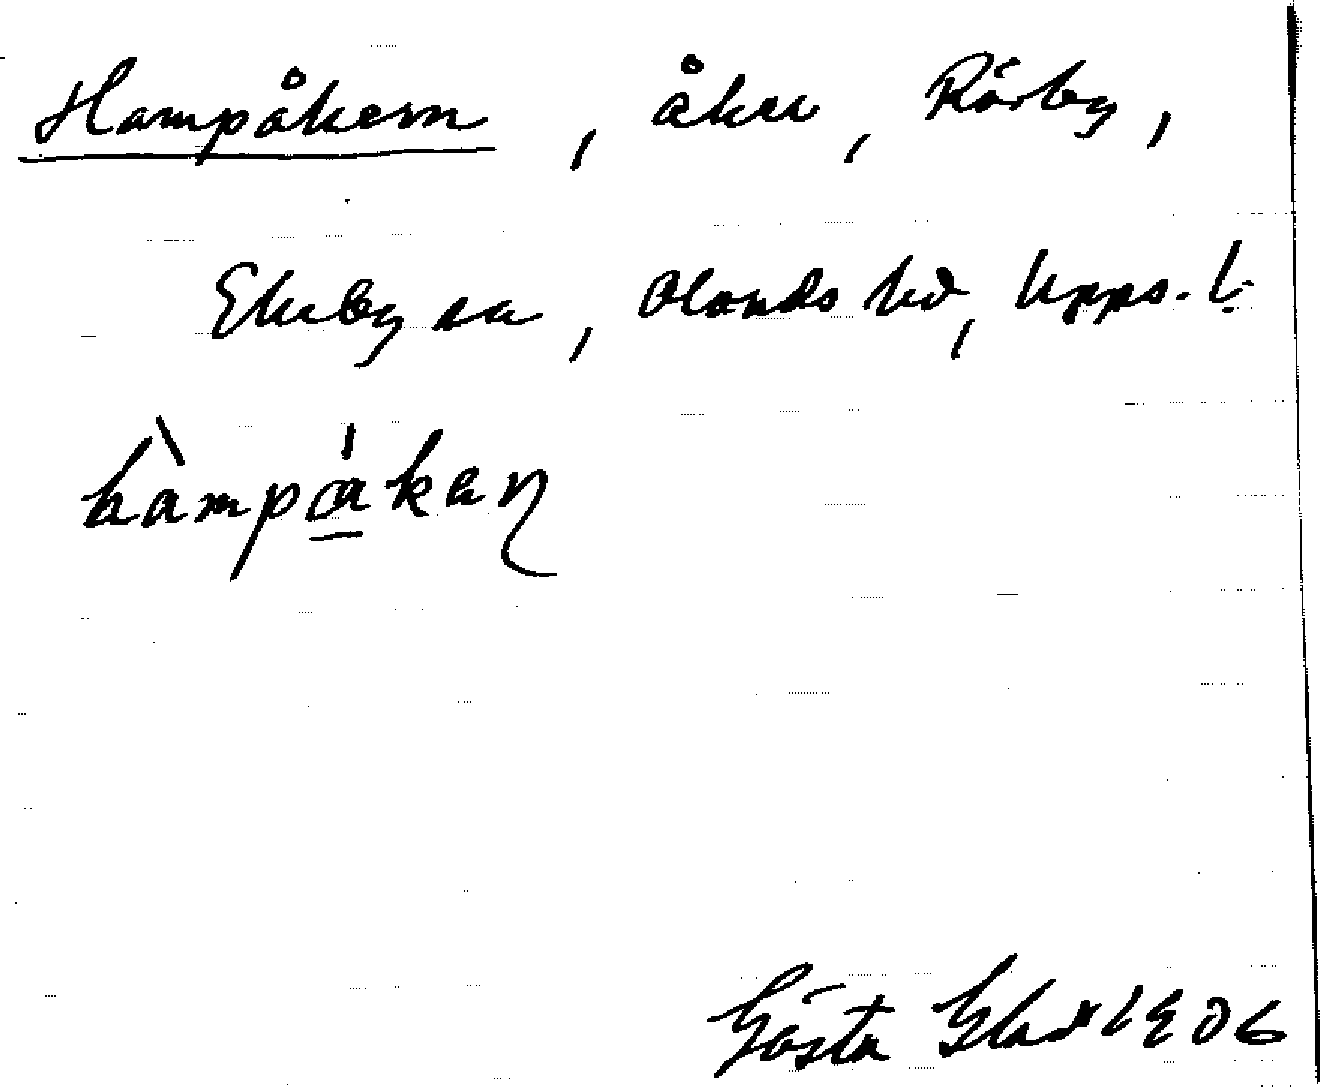 Hampåkern, åker, Rörby,
Ekeby sn, Olands hd, Upps. l.
hàmpå̀kaɳ
Gösta Glad 1906